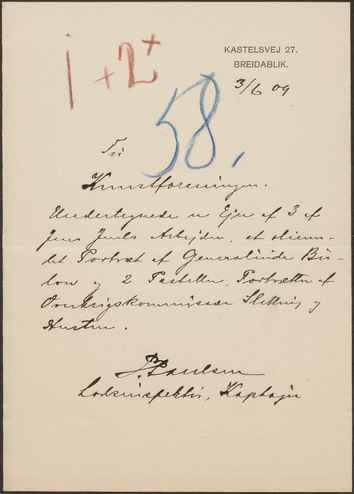 KASTELSVEJ 27.
BREIDABLIK.
3/6 09
1 + 2 +
58,
Til
Kunstforeningen.
Undertegnede er Ejer af 3 af
Jens Juels Arbejder, et
Portræt af Generalinde Bü-
low og 2 Pasteller, Portrætter af
Overkrigskommissær og
Hustru.
Paulsen
Lodsinspektør, Kaptajn